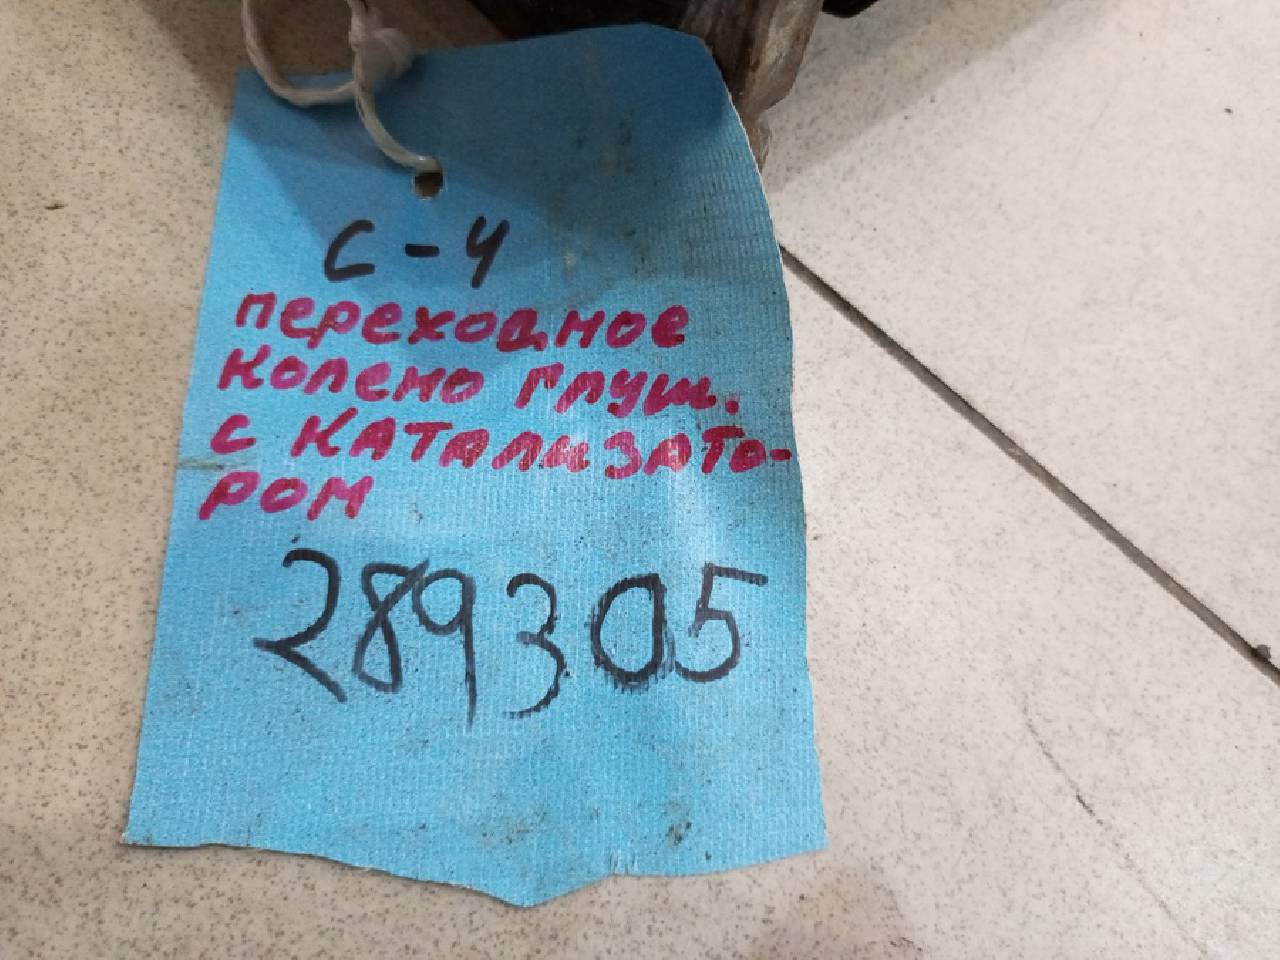 С-4
переходное
колено глуш.
с катализато-
ром
289305